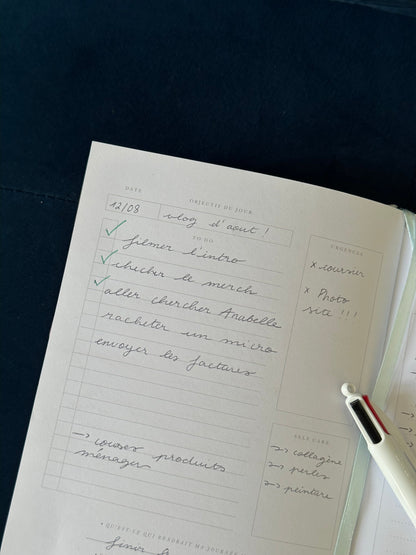 DATE
OBJECTIF DU JOUR
12/08
vlog d'aout !
TO DO
filmer l'intro
checker le merch
aller chercher Anabelle
racheter un micro
envoyer les factures
-> courses produits
ménager
URGENCES
x courrier
x Photo
site !!!
SELF CARE
-> collagène
-> perles
-> peinture
• QU'EST-CE QUI RENDRAIT MA JOURNÉE
finir